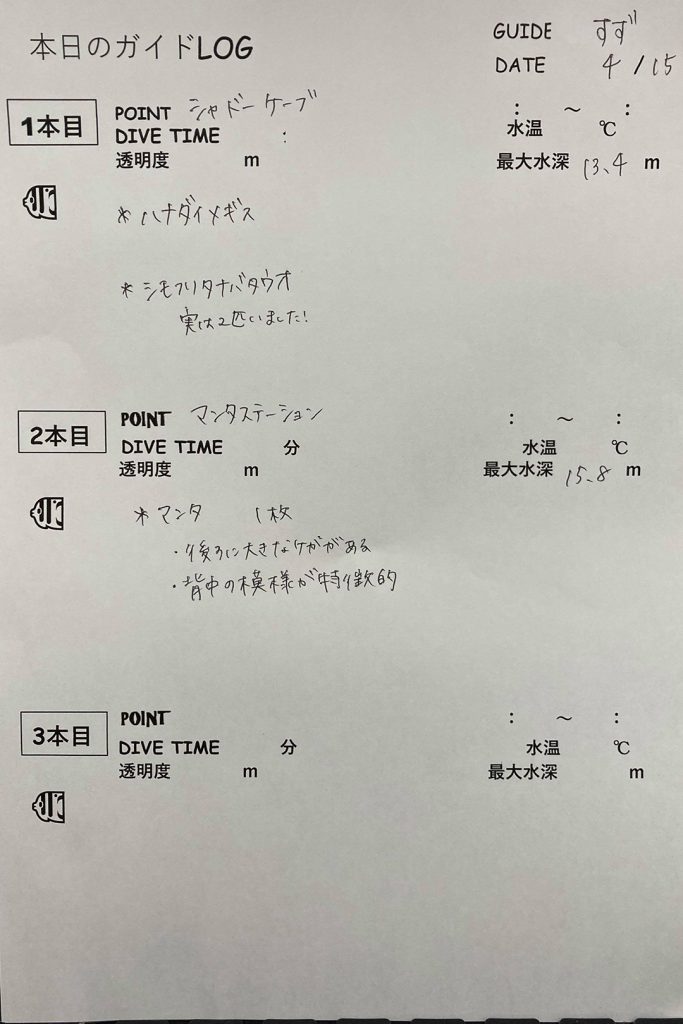 本日のガイドLOG
GUIDE すず
DATE 4 / 15
1本目
POINT シャドーケーブ : ～ :
DIVE TIME : 水温 ℃
透明度 m 最大水深 13.4 m
* ハナダイメギス
* シモフリタナバタウオ
実は2匹いました!
2本目
POINT マンタステーション : ～ :
DIVE TIME 分 水温 ℃
透明度 m 最大水深 15.8 m
* マンタ 1枚
・後ろに大きなケガがある
・背中の模様が特徴的
3本目
POINT : ～ :
DIVE TIME 分 水温 ℃
透明度 m 最大水深 m